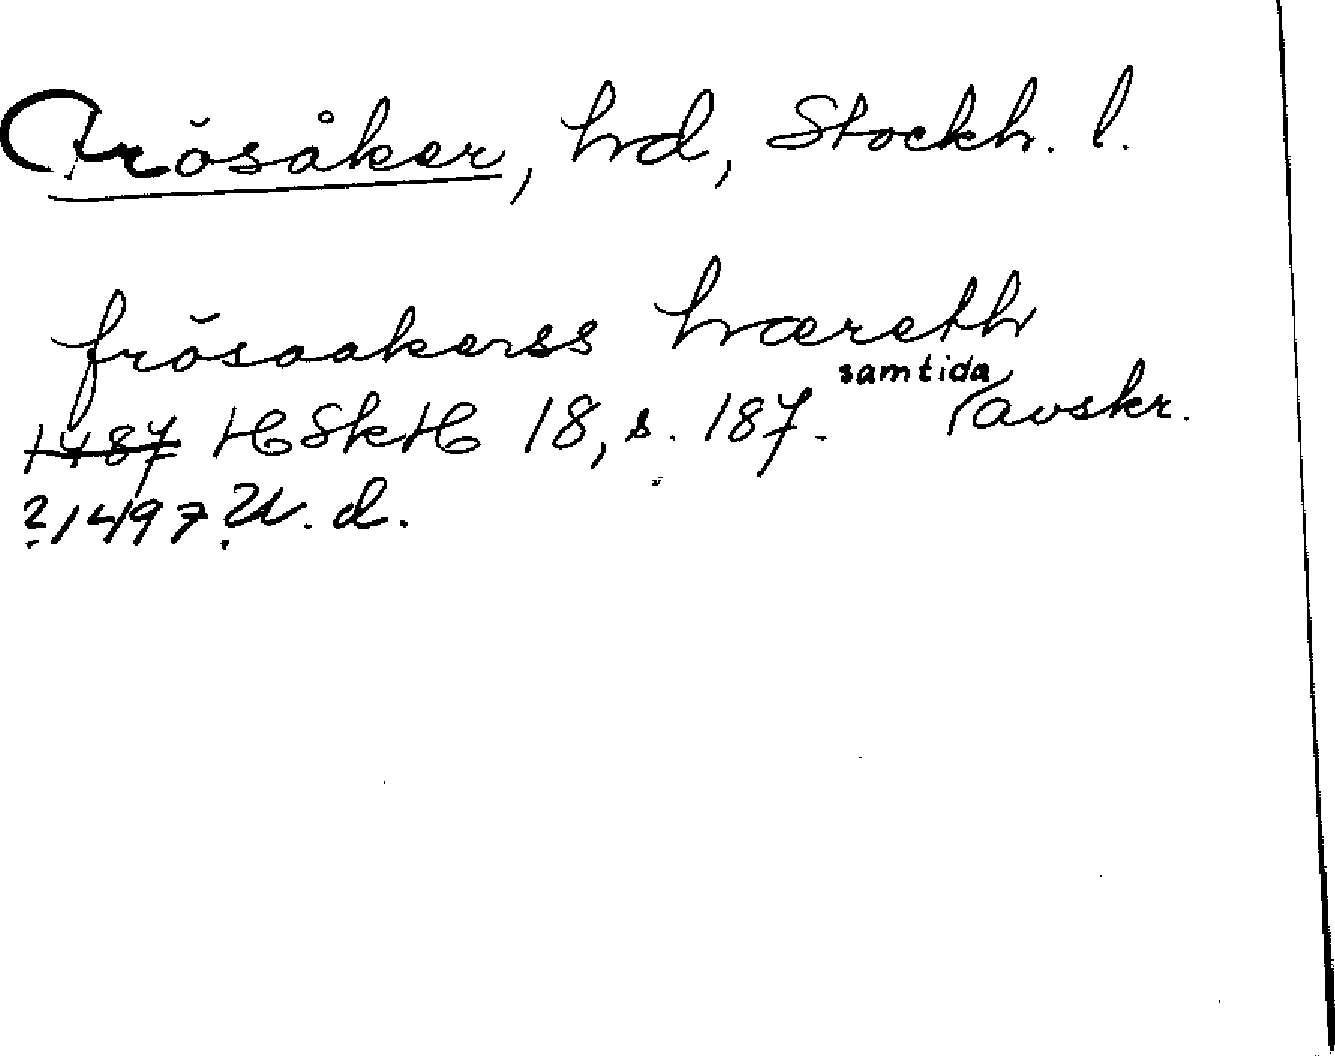 Frösåker, hd, Stockh. l.
frösaakerss hæreth
samtida
1487 HSkH 18, s. 187. avskr.
?1497? U. d.